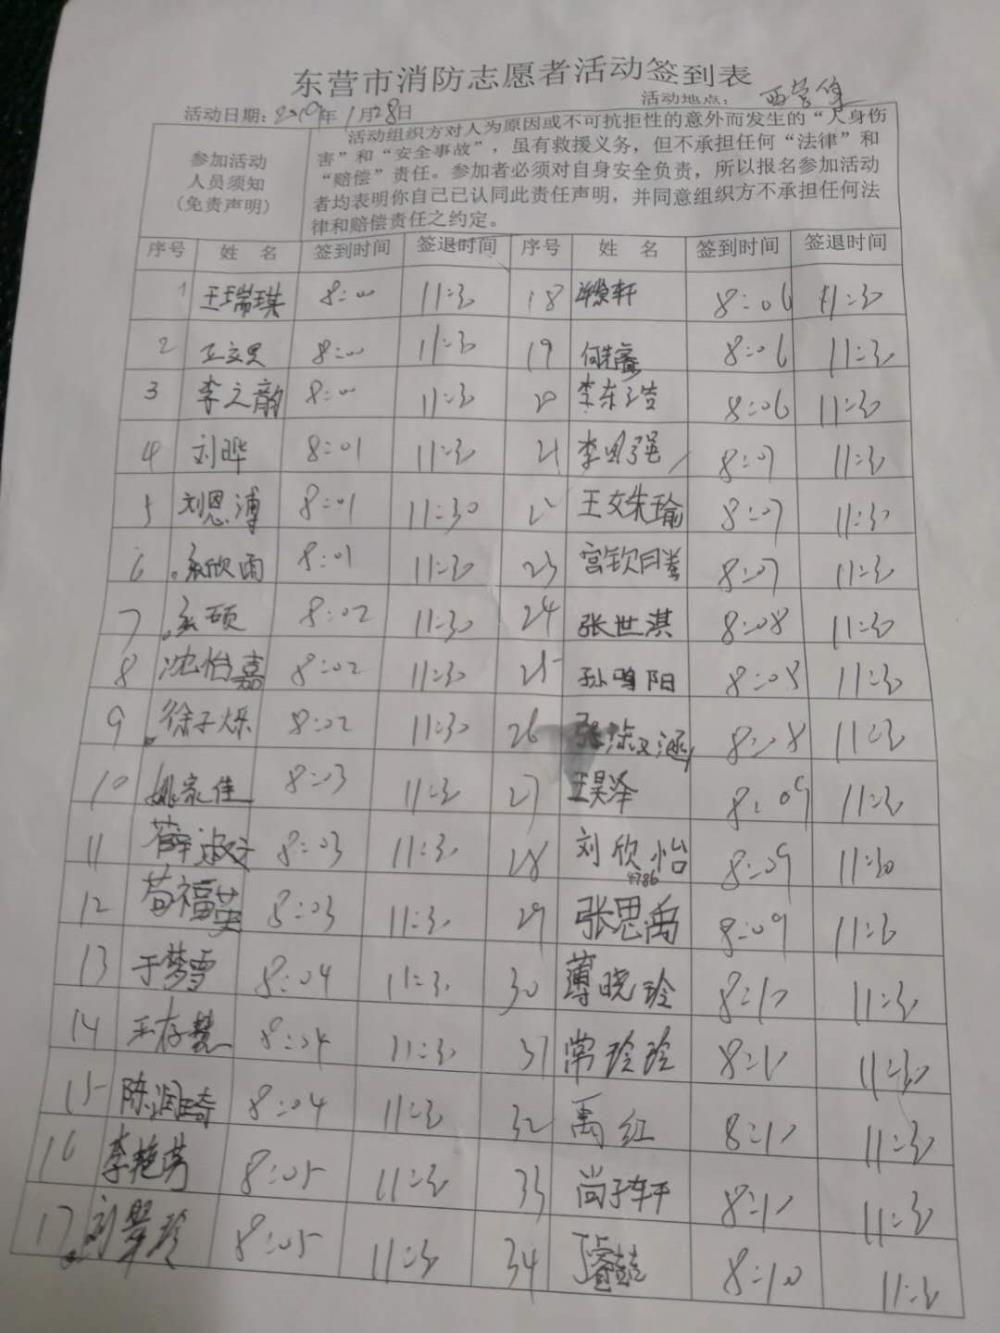 东营市消防志愿者活动签到表
活动日期：2019年1月28日 活动地点：西营
参加活动
人员须知
(免责声明)
活动组织方对人为原因或不可抗拒性的意外而发生的“人身伤
害”和“安全事故”，虽有救援义务，但不承担任何“法律”和
“赔偿”责任。参加者必须对自身安全负责，所以报名参加活动
者均表明你自己已认同此责任声明，并同意组织方不承担任何法
律和赔偿责任之约定。
序号 姓 名 签到时间 签退时间 序号 姓 名 签到时间 签退时间
1 王瑞琪 8:00 11:30 18 轩 8:06 11:30
2 8:00 11:30 19 何 8:06 11:30
3 李之韵 8:00 11:30 20 李东浩 8:06 11:30
4 刘晔 8:01 11:30 21 李 强 8:07 11:30
5 刘恩溥 8:01 11:30 22 王文珠瑜 8:07 11:30
6 欣雨 8:01 11:30 23 宫钦 8:07 11:30
7 硕 8:02 11:30 24 张世淇 8:08 11:30
8 沈怡嘉 8:02 11:30 25 孙鸣阳 8:08 11:30
9 徐子烁 8:02 11:30 26 张 涵 8:08 11:30
10 姚家佳 8:03 11:30 27 王昊泽 8:09 11:30
11 薛淑 8:03 11:30 28 刘欣怡 8:09 11:30
12 苟福英 8:03 11:30 29 张思禹 8:09 11:30
13 于梦雪 8:04 11:30 30 薄晓玲 8:10 11:30
14 王存慧 8:04 11:30 31 常玲玲 8:10 11:30
15 陈润琦 8:04 11:30 32 禹红 8:10 11:30
16 李艳芳 8:05 11:30 33 尚子轩 8:10 11:30
17 刘翠玲 8:05 11:30 34 8:10 11:30